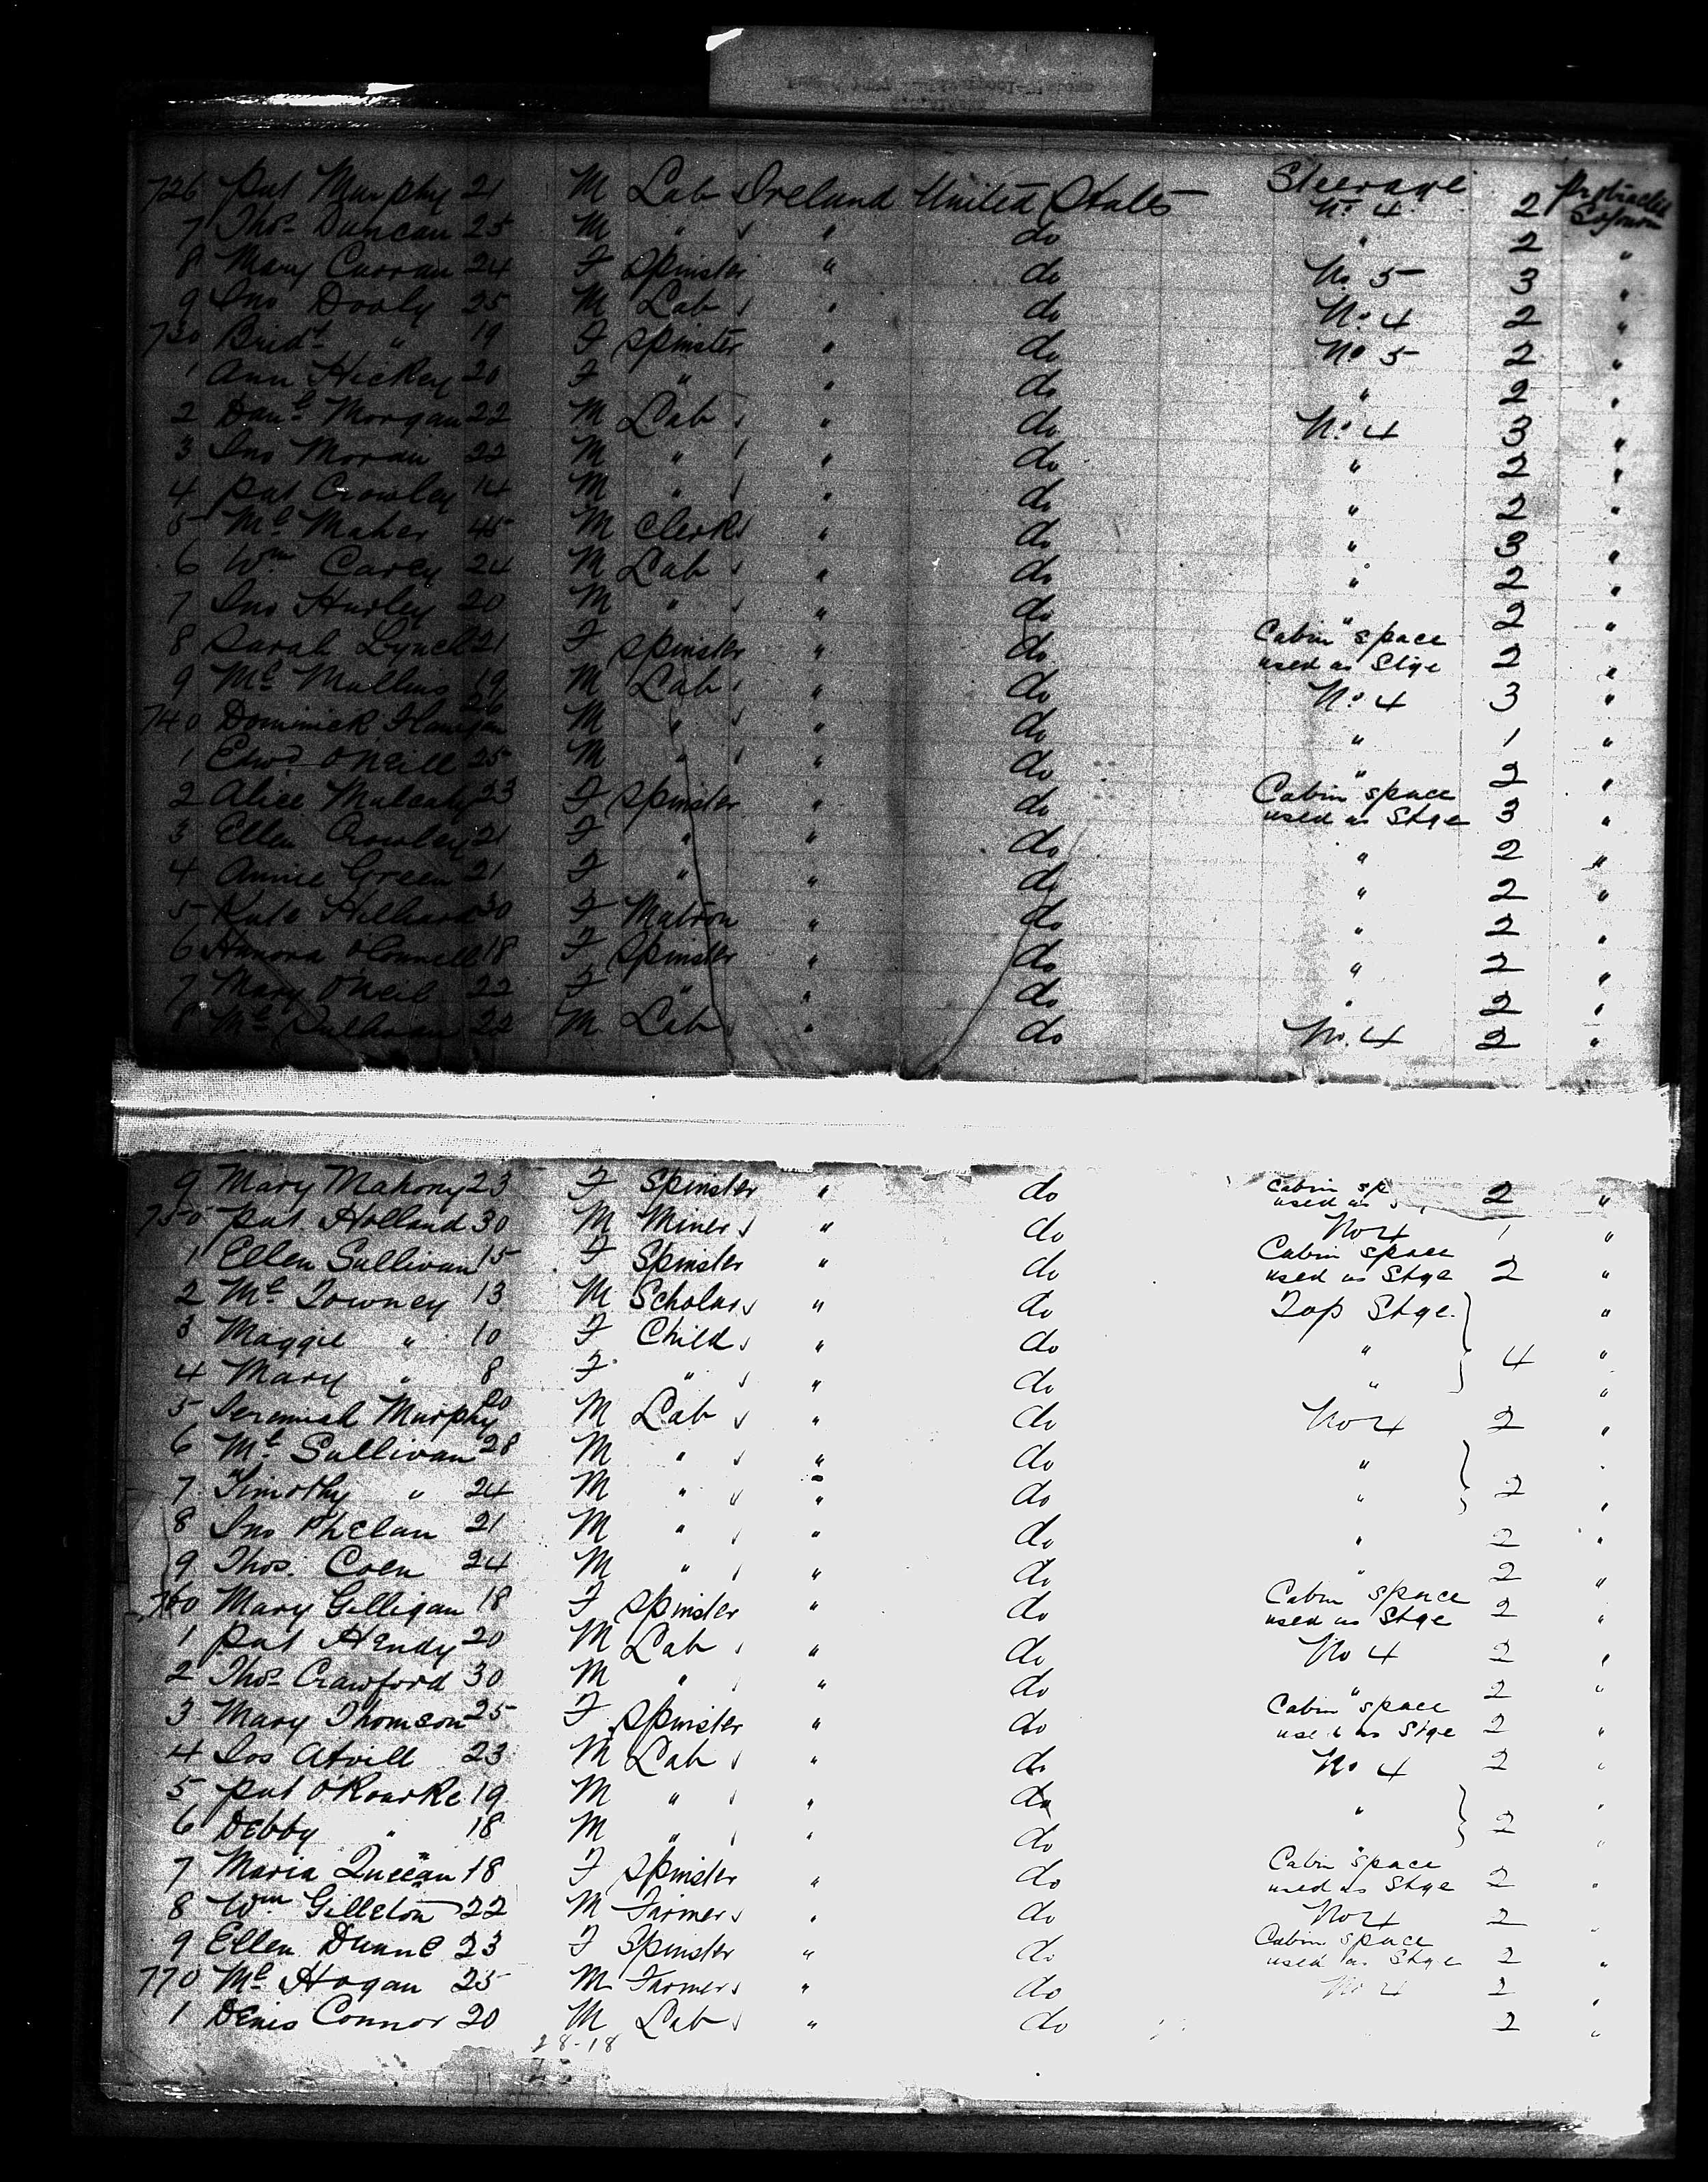 726 Pat Murphy 21 M Lab Ireland United States Steerage No. 4 2 Protracted Sojourn
7 Thos. Duncan 25 M " " do " 2 "
8 Mary Curran 24 F Spinster " do No. 5 3 "
9 Jno Dooly 25 M Lab " do No. 4 2 "
730 Bridt " 19 F Spinster " do No 5 2 "
1 Ann Hickey 20 F " " do " 2 "
2 Danl Morgan 22 M Lab " do No. 4 3 "
3 Jno Moran 22 M " " do " 2 "
4 Pat Crowley 14 M " " do " 2 "
5 Ml Maher 45 M Clerk " do " 3 "
6 Wm Carey 24 M Lab " do " 2 "
7 Jno Hurley 20 M " " do " 2 "
8 Sarah Lynch 21 F Spinster " do Cabin space used as Stge 2 "
9 Ml Mullins 19 M Lab " do No. 4 3 "
740 Dominick 26 M " " do " 1 "
1 Edwd O'Neill 25 M " " do " 2 "
2 Alice Mulcahy 23 F Spinster " do Cabin space used as Stge 3 "
3 Ellen Crowley 21 F " " do " 2 "
4 Annie Green 21 F " " do " 2 "
5 Kate Hilliard 30 F Matron " do " 2 "
6 Hanora O'Connell 18 F Spinster " do " 2 "
7 Mary O'Neil 22 F " " do " 2 "
8 Ml Sullivan 22 M Lab " do No. 4 2 "
9 Mary Mahony 23 F Spinster " do Cabin sp used as S 2 "
750 Pat Holland 30 M Miner " do No 4 1 "
1 Ellen Sullivan 15 F Spinster " do Cabin space used as Stge 2 "
2 Ml Towney 13 M Scholar " do Top Stge. "
3 Maggie " 10 F Child " do " 4 "
4 Mary " 8 F " " do " "
5 Jeremiah Murphy 20 M Lab " do No 4 2 "
6 Ml Sullivan 28 M " " do " "
7 Timothy " 24 M " " do " 2 "
8 Jno Phelan 21 M " " do " 2 "
9 Thos. Coen 24 M " " do " 2 "
760 Mary Gilligan 18 F Spinster " do Cabin space used as Stge 2 "
1 Pat Hendy 20 M Lab " do No 4 2 "
2 Thos Crawford 30 M " " do " 2 "
3 Mary Thomson 25 F Spinster " do Cabin space used as Stge 2 "
4 Jos Atvill 23 M Lab " do No 4 2 "
5 Pat O'Rourke 19 M " " do " "
6 Debby " 18 M " " do 2 "
7 Maria Queean 18 F Spinster " do Cabin space used as Stge 2 "
8 Wm Gilleton 22 M Farmer " do No 4 2 "
9 Ellen Duane 23 F Spinster " do Cabin space used as Stge 2 "
770 Ml Hogan 25 M Farmer " do No 4 2 "
1 Denis Connor 20 M Lab " do 2 "
28-18